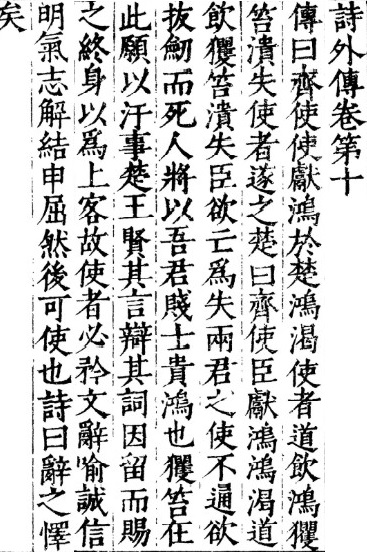 詩外傳卷第十
傳曰齊使使獻鴻於楚鴻渴使者道飲鴻玃
笞潰失使者遂之楚曰齊使臣獻鴻鴻渴道
飲玃笞潰失臣欲亡為失兩君之使不通欲
拔劒而死人將以吾君賤士貴鴻也玃笞在
此願以汙事楚王賢其言辯其詞因留而賜
之終身以爲上客故使者必矜文辭喻誠信
明氣志解結申屈然後可使也詩曰辭之懌
矣